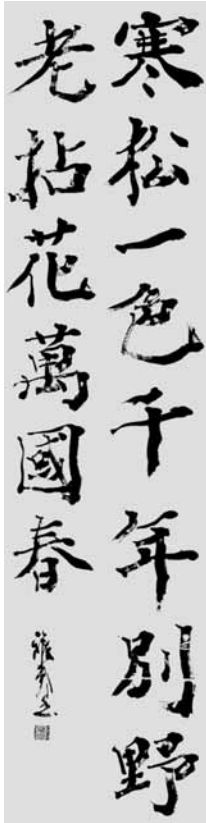 寒松一色千年別野
老拈花萬國春